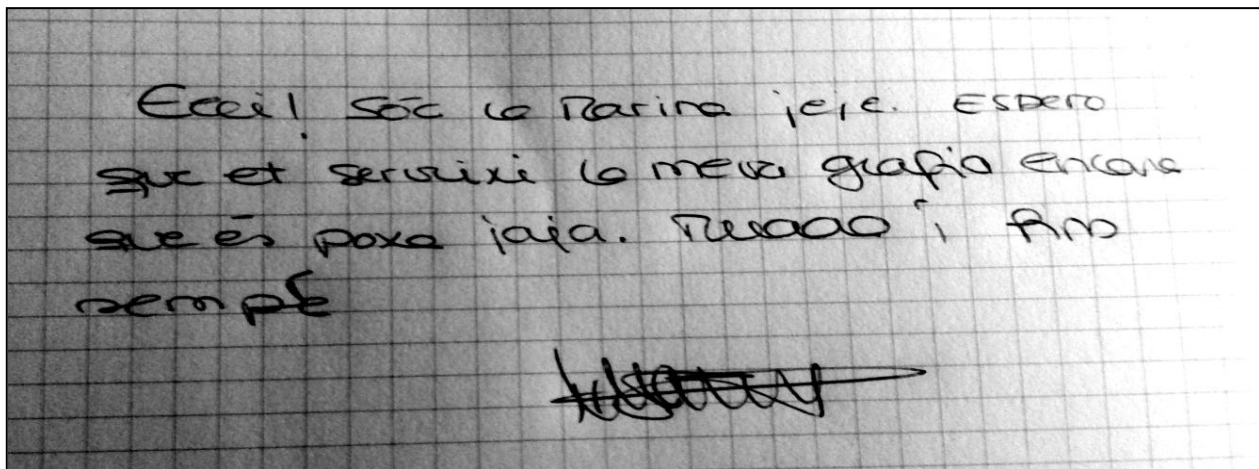 Eeei! Sóc la Marina jeje. Espero
que et serveixi la meva grafia encara
que és poxa jaja. i fins
sempre